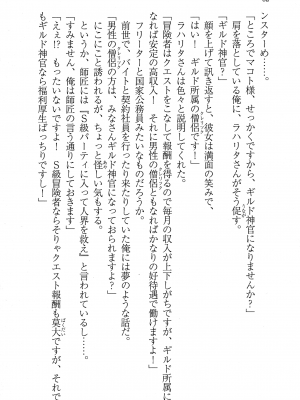 ンスタ　め……。
「ところでマコト様、せっかくですから、ギルド神官になりませんか？」
肩を落としている俺に、ラハリタさんがそう促す。
「ギルド神官？」
顔を上げて訊き返すと、彼女は満面の笑みで、
「はい！　ギルド所属の僧侶です！」
ラハリタさんは色々と説明してくれた。
「冒険者はクエストをこなして報酬を得るので毎月の収入が上下しがちですが、ギルド所属に
なれば安定の高収入！　さらに男性の僧侶ともなればかなりの好待遇で働けますよ！」
フリーターと国家公務員みたいなものだろうか。
前世で、バイトと契約社員を行ったり来たりしていた俺には夢のような話だ。
「男性の僧侶の方は、みなさんギルド神官になっておられますよ？」
にこにこと誘われるが、ちょっと怪しい気もする。
というか、師匠には『Ｓ級パーティに入って人界を救え』と言われているし……。
「すみません、師匠の言う通りにしておきます」
「えぇ!?　もったいないですよ！　Ｓ級冒険者ならそりゃクエスト報酬も莫大ですが、それで
もギルド神官なら福利厚生ばっちりですし！」